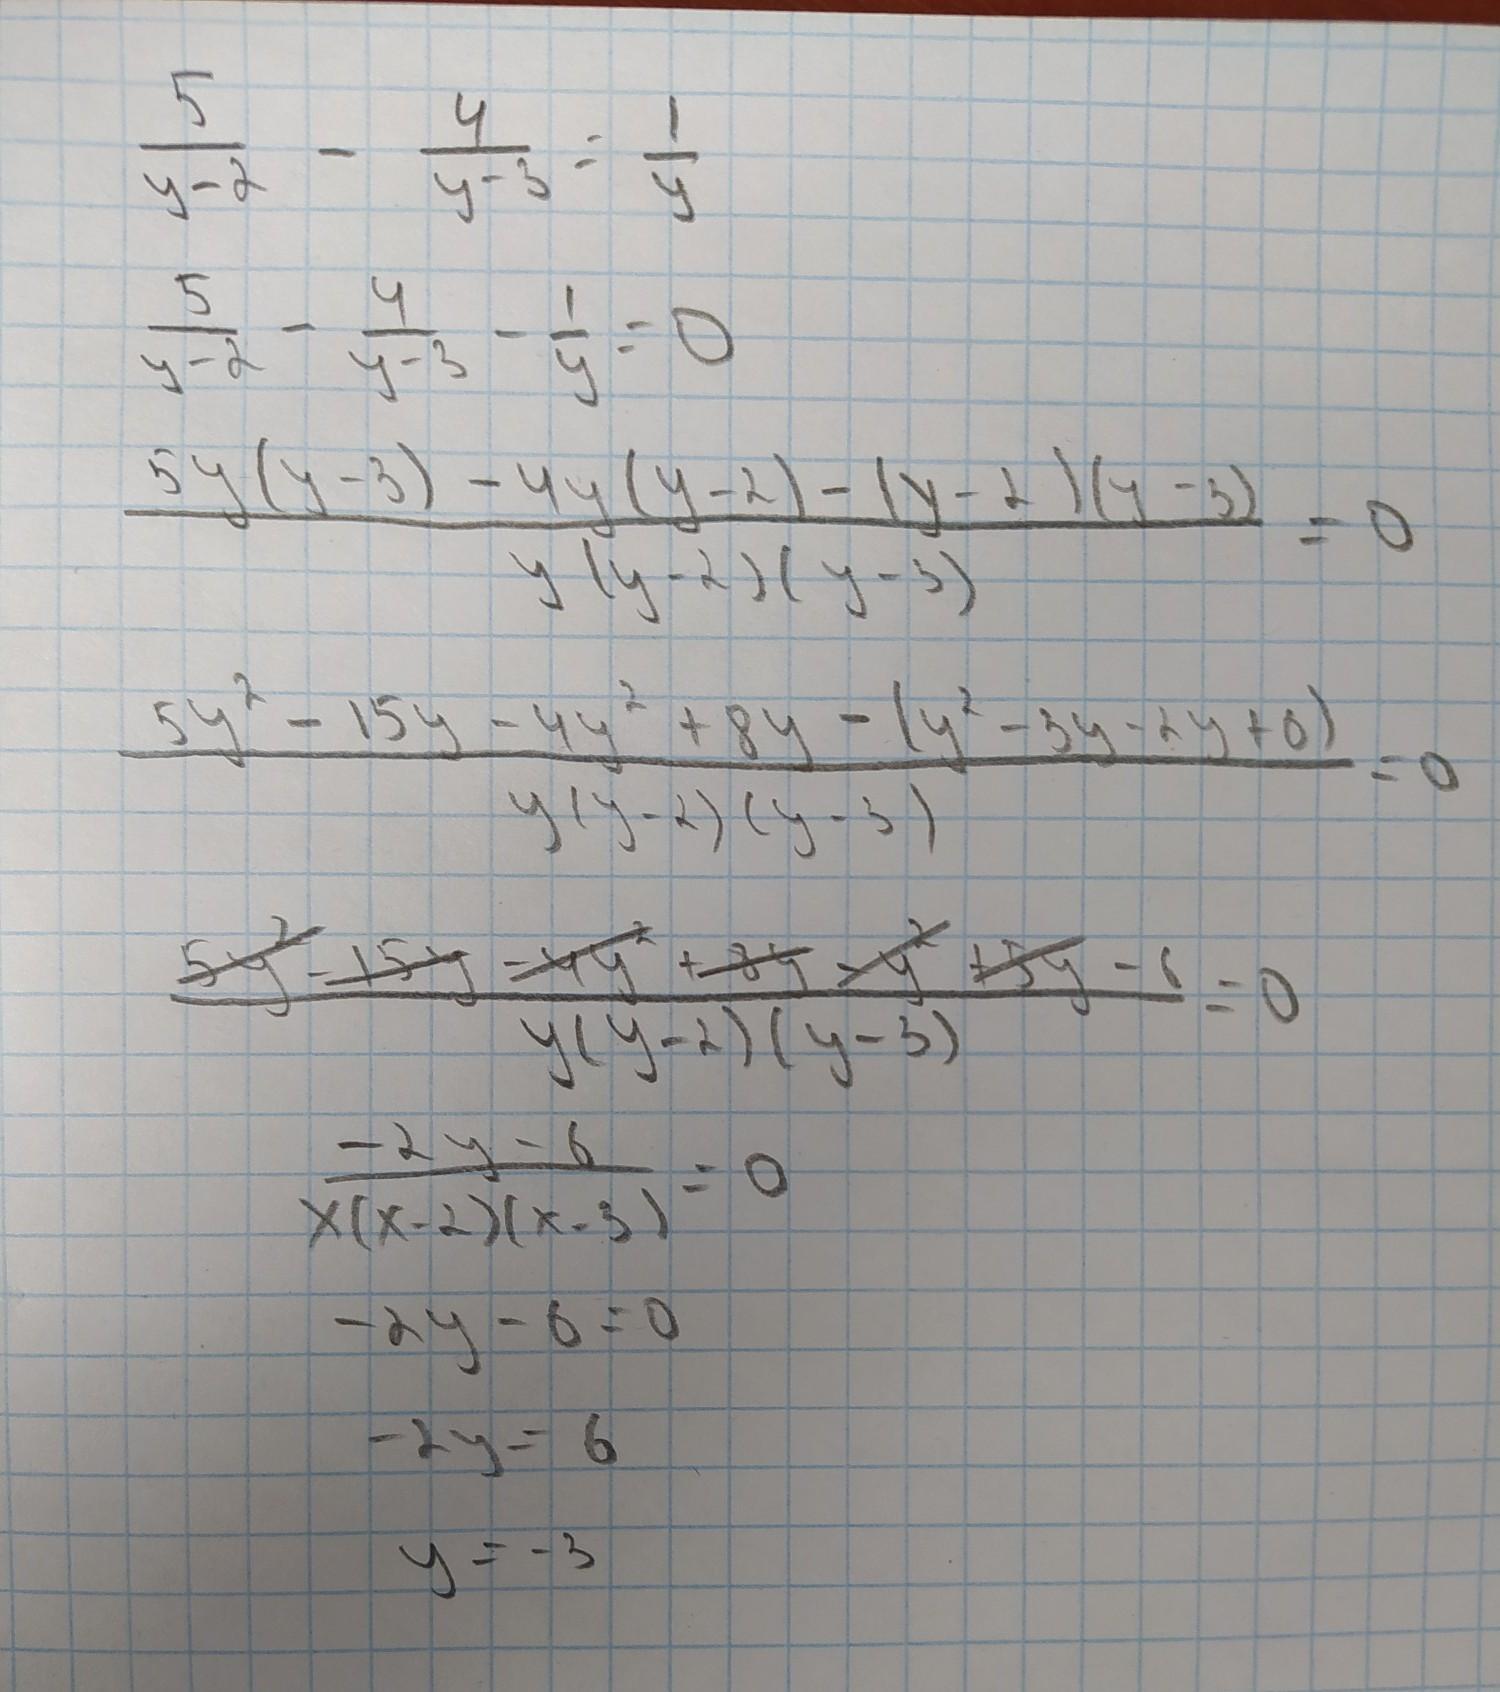 5/(y-2) - 4/(y-3) = 1/y
5/(y-2) - 4/(y-3) - 1/y = 0
(5y(y-3) - 4y(y-2) - (y-2)(y-3))/(y(y-2)(y-3)) = 0
(5y² - 15y - 4y² + 8y - (y² - 3y - 2y + 6))/(y(y-2)(y-3)) = 0
(5y² - 15y - 4y² + 8y - y² + 5y - 6)/(y(y-2)(y-3)) = 0
(-2y - 6)/(x(x-2)(x-3)) = 0
-2y - 6 = 0
-2y = 6
y = -3